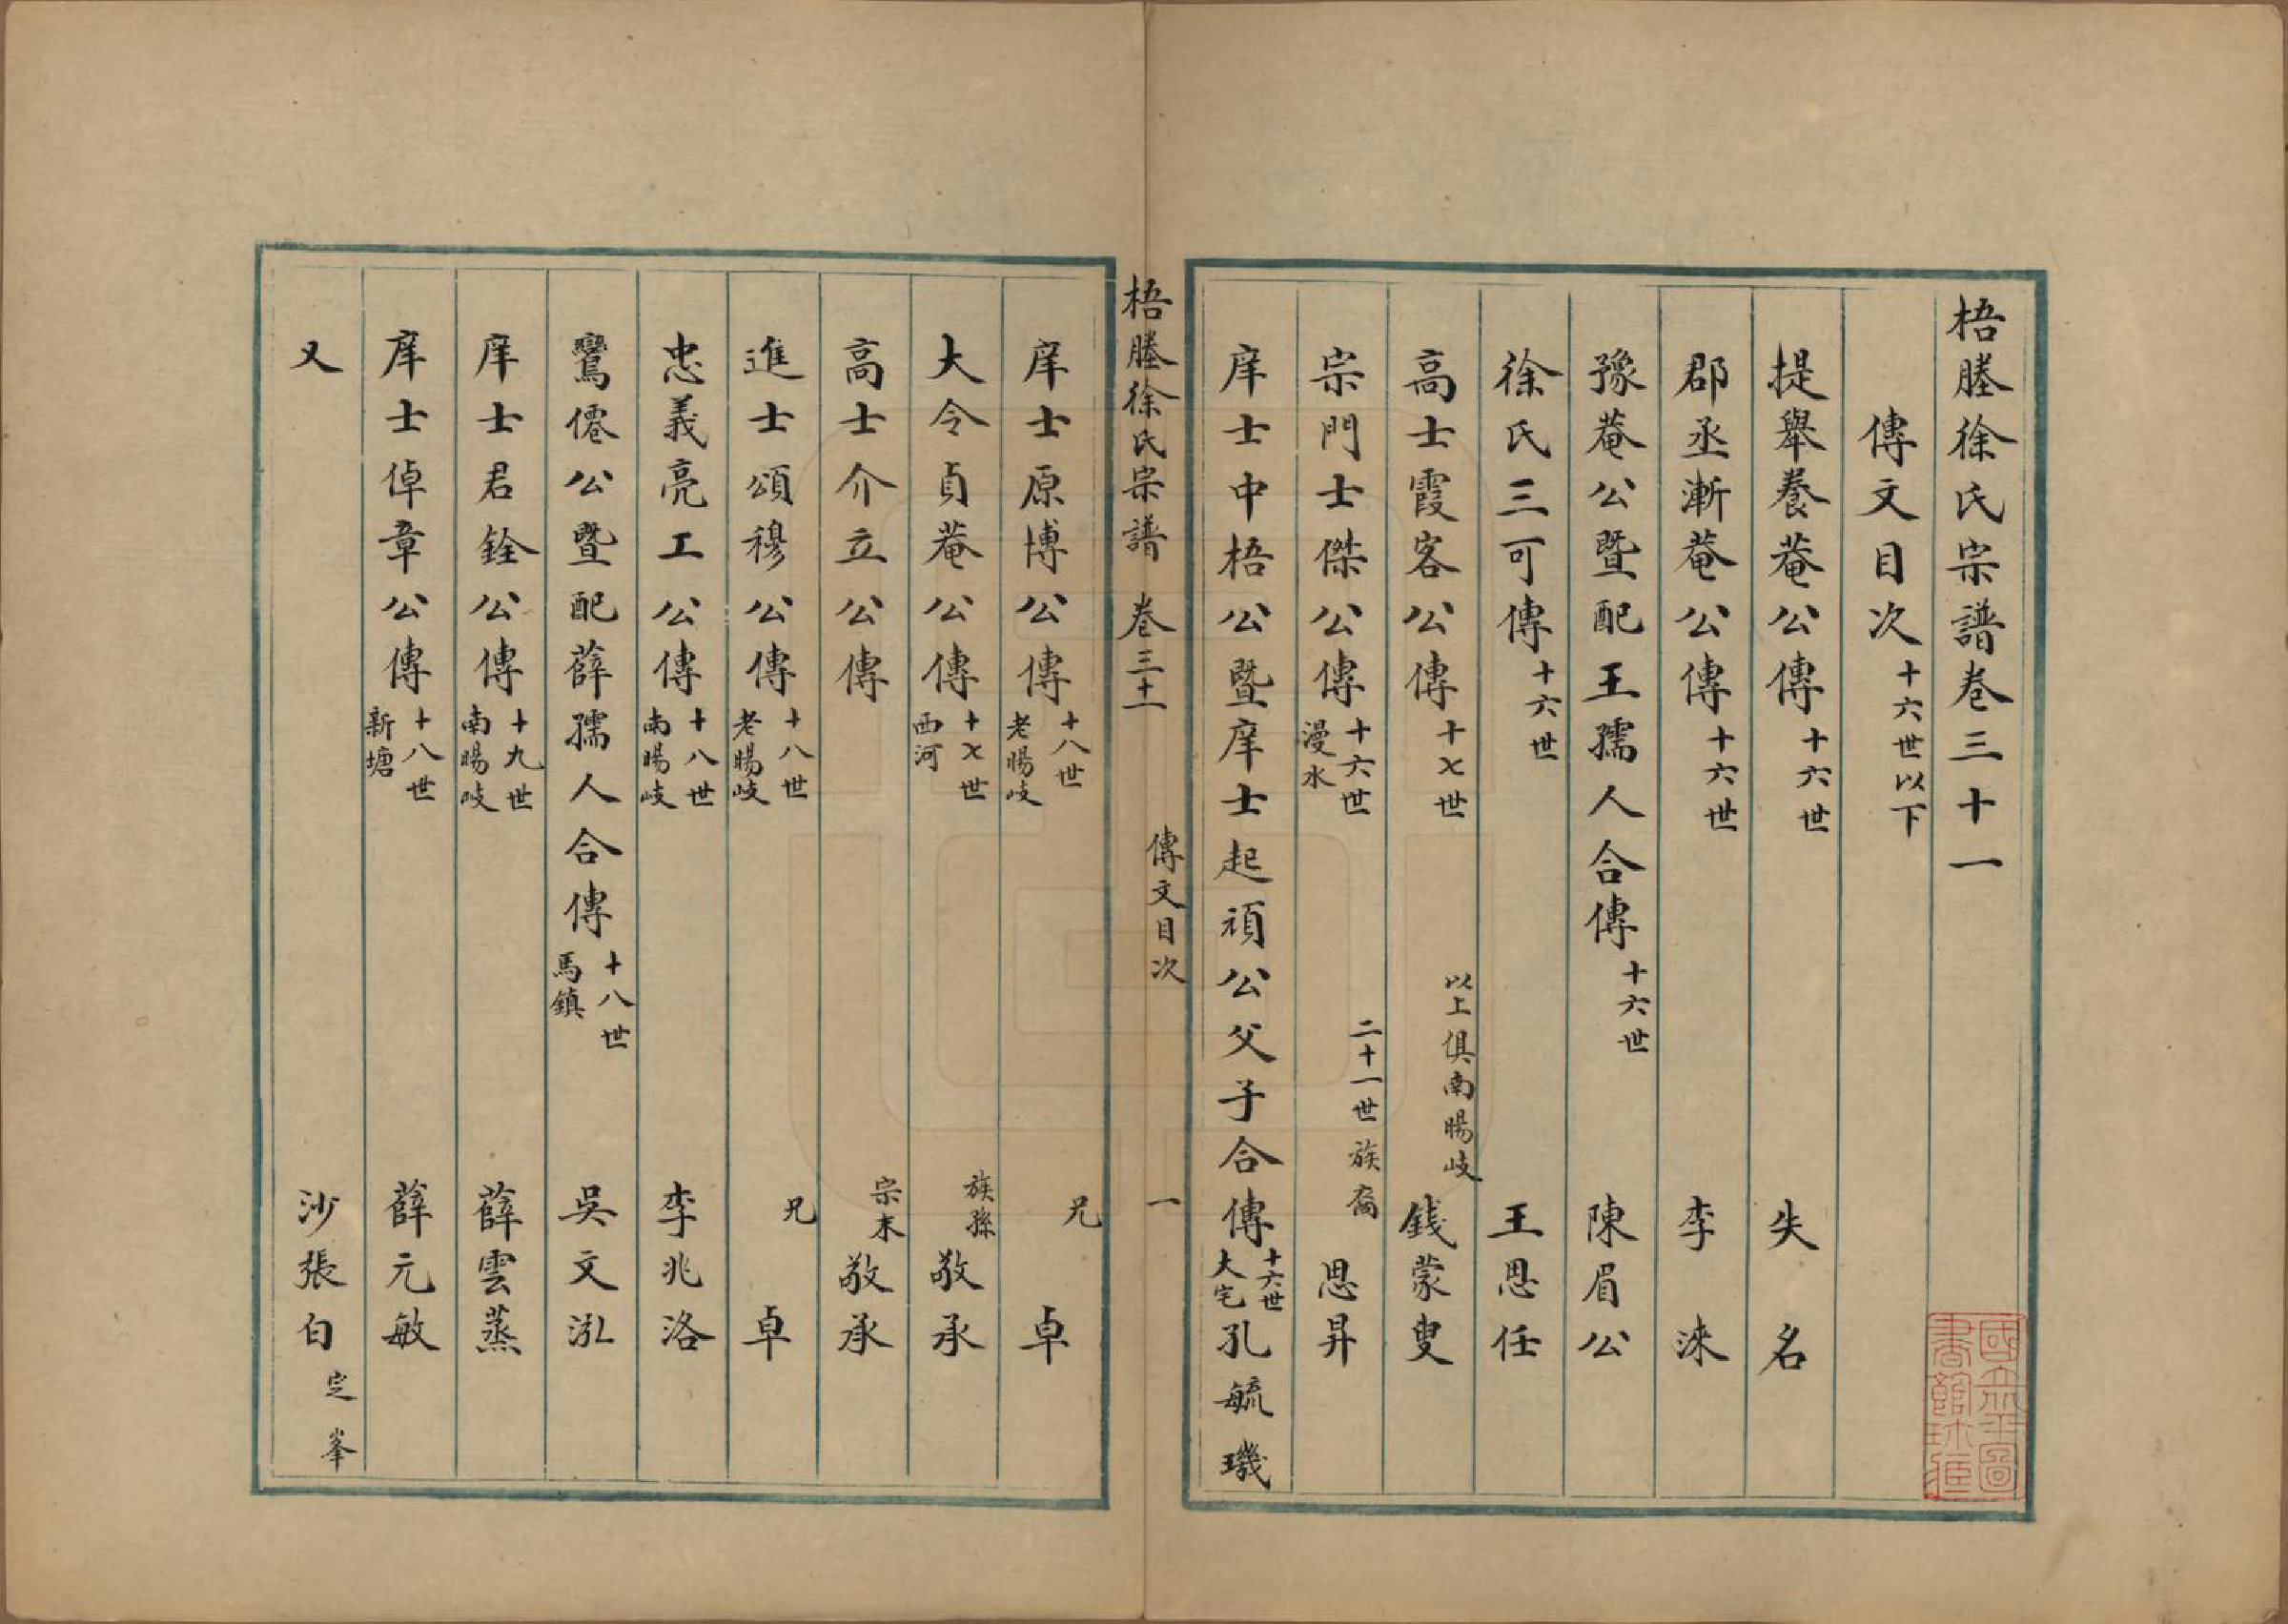 梧塍徐氏宗譜卷三十一
傳文目次十六世以下
提舉養菴公傳十六世 失名
郡丞漸菴公傳十六世 李洣
豫菴公暨配王孺人合傳十六世 陳眉公
徐氏三可傳十六世 王思任
高士霞客公傳十七世 以上俱南暘岐 錢蒙叟
宗門士傑公傳十六世漫水 二十一世族裔 思昇
庠士中梧公暨庠士起頑公父子合傳十六世大宅 孔毓璣
梧塍徐氏宗譜 卷三十一 傳文目次 一
庠士原博公傳十八世老暘岐 兄 卓
大令貞菴公傳十七世西河 族孫 敬承
高士介立公傳 宗末 敬承
進士頌穆公傳十八世老暘岐 兄 卓
忠義亮工公傳十八世南暘岐 李兆洛
鸞僊公暨配薛孺人合傳十八世馬鎮 吳文泓
庠士君銓公傳十九世南暘岐 薛雲蒸
庠士倬章公傳十八世新塘 薛元敏
又 沙張白定峯
國立北平圖書館珍藏